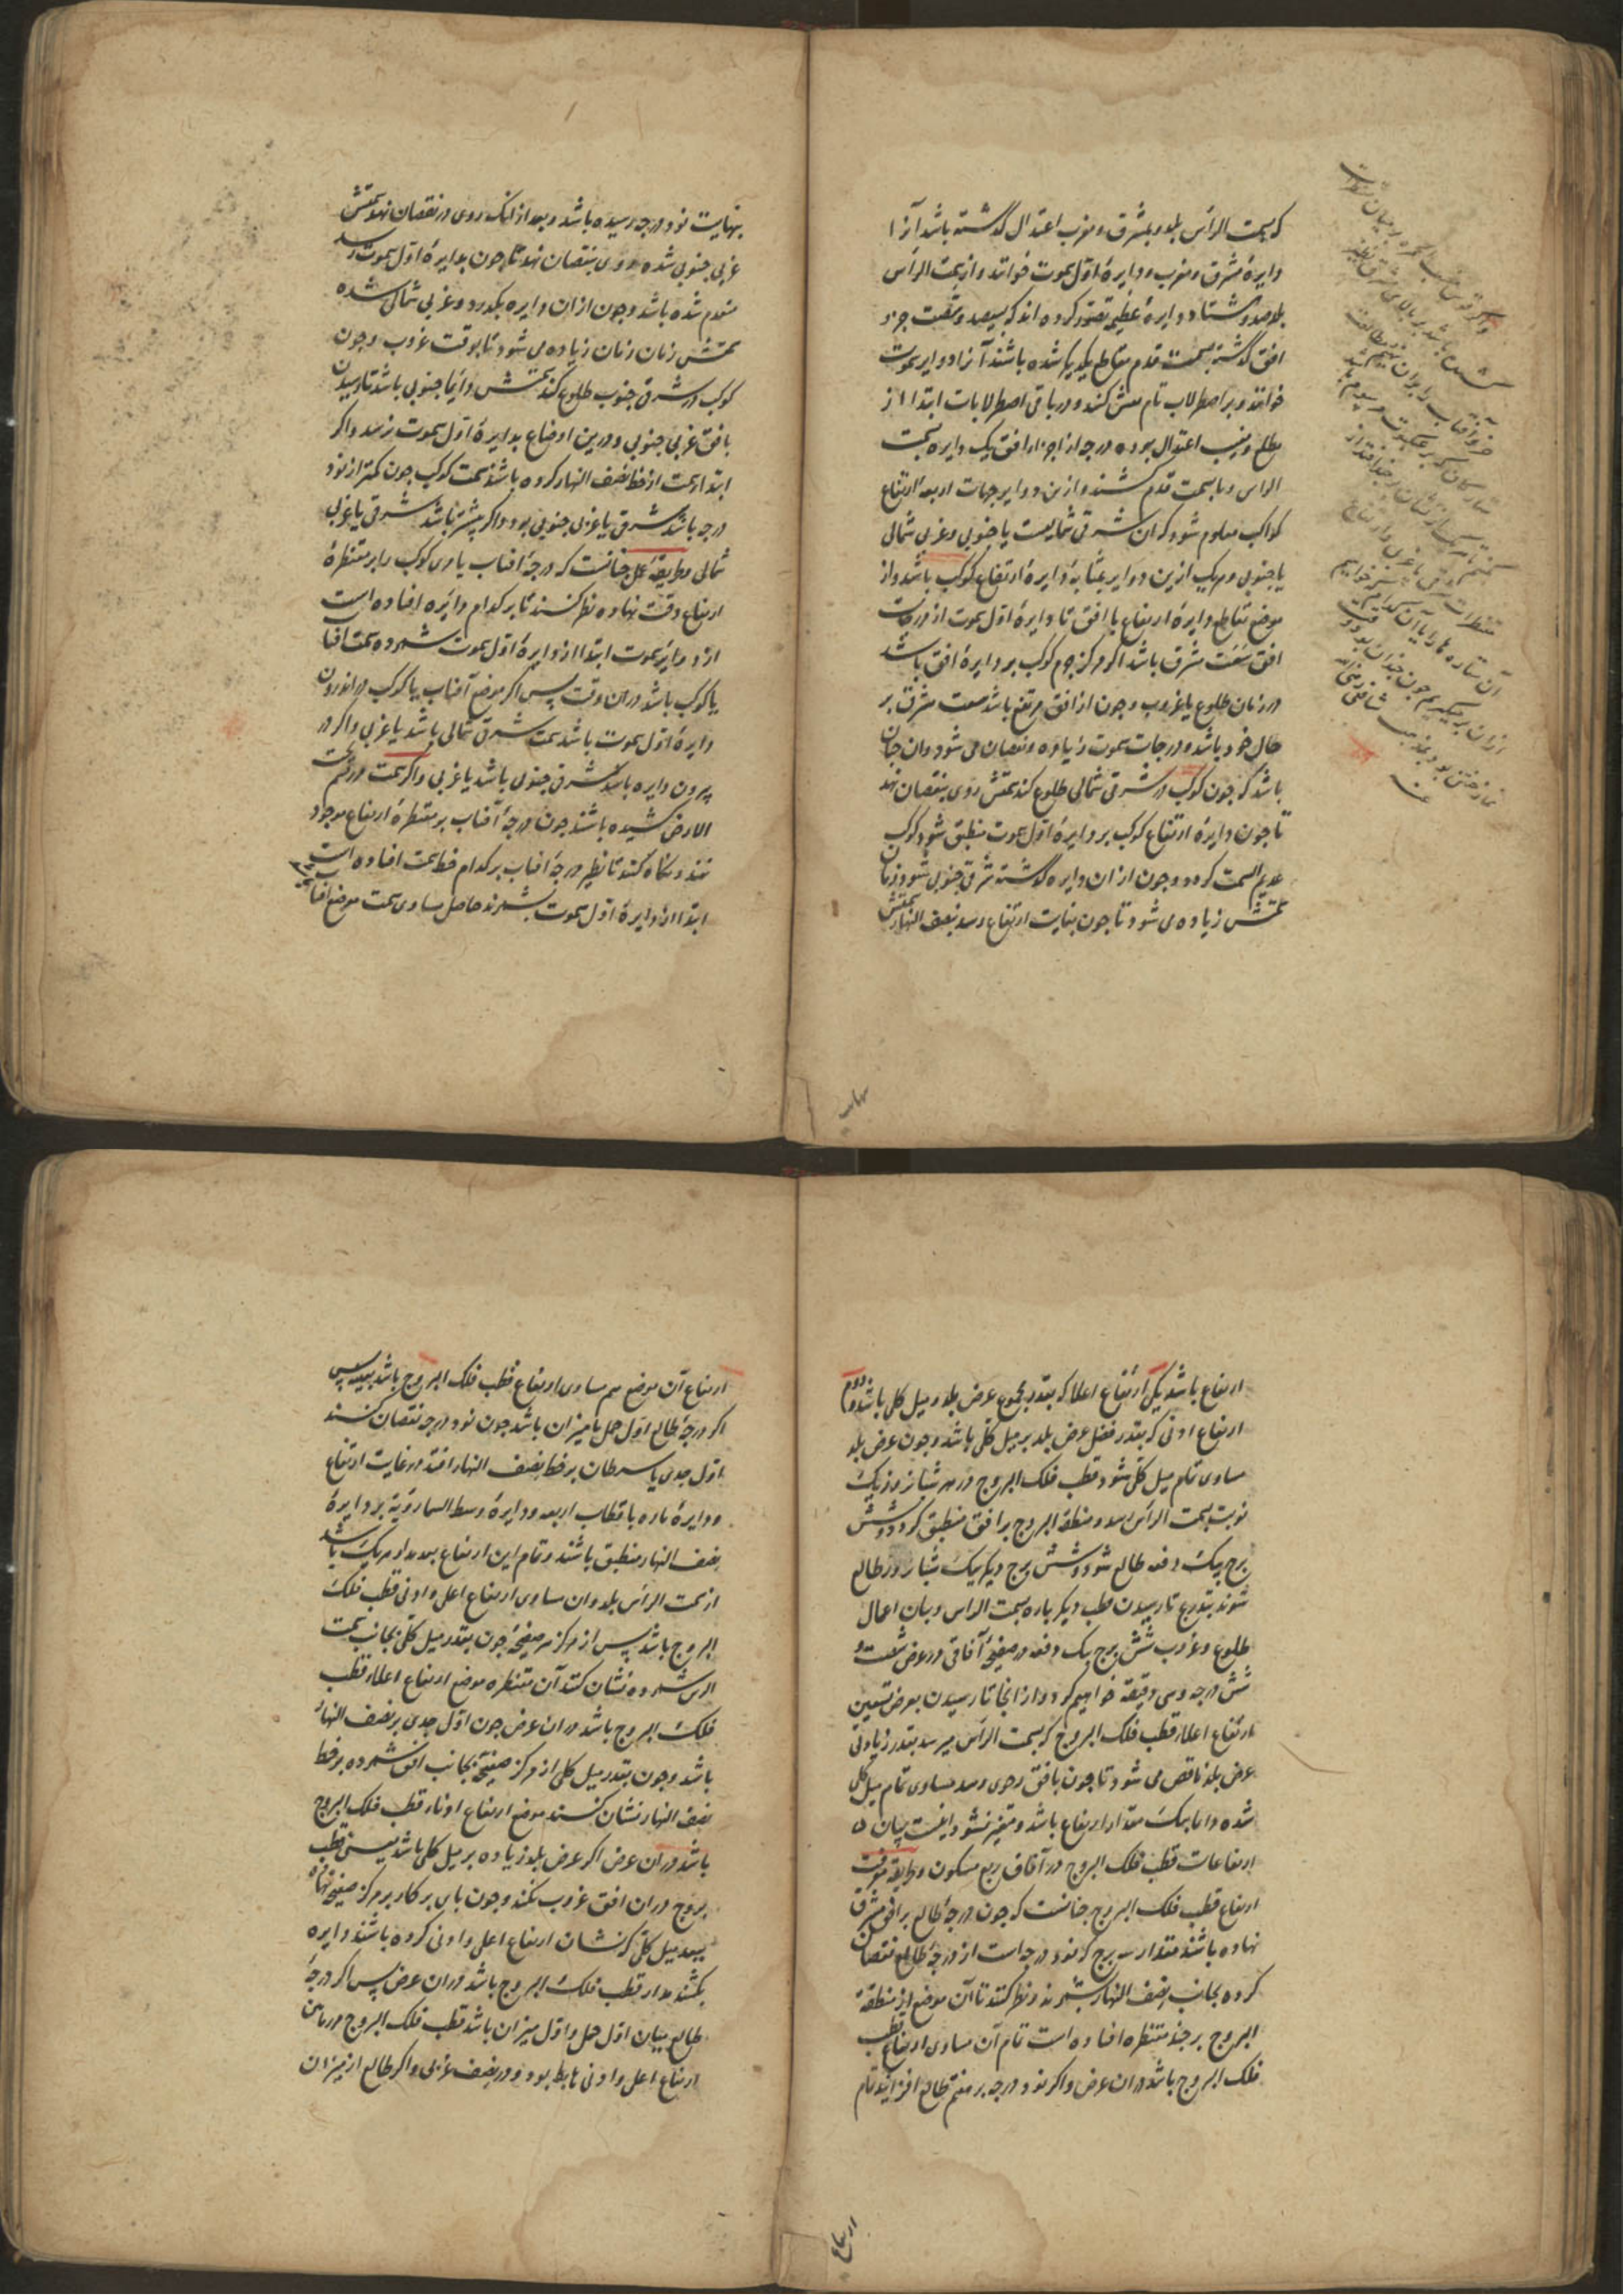 که بسمت الرأس بلد و بمشرق و مغرب اعتدال گذشته باشد آنرا
دایرهٔ مشرق و مغرب و دایرهٔ اوّل سموت خوانند و از سمت الرأس
بلد صد و هشتاد دایرهٔ عظیمه تصوّر کرده اند که بسیصد و شصت جزو
افق گذشته بسمت قدم متقاطع یکدیگر شده باشند آنرا دوایر سموت
خوانند و بر اصطرلاب تام نقش کنند و در باقی اصطرلابات ابتدا از
مطلع و مغیب اعتدال بوده درجه از اجزاء افق یک دایره بسمت
الراس و یا سمت قدم کشند و ازین دوایر جهات اربعه ارتفاع
کواکب معلوم شود که آن شرقی شمالیست یا جنوبی و غربی شمالی
یا جنوبی و هر یک ازین دوایر بمثابهٔ دایرهٔ ارتفاع کوکب باشد و از
موضع تقاطع دایرهٔ ارتفاع با افق تا دایرهٔ اوّل سموت از درجات
افق سعت مشرق باشد اگر مرکز جرم کوکب بر دایرهٔ افق باشد
در زمان طلوع یا غروب و چون از افق مرتفع باشد سعت مشرق بر
حال خود باشد و درجات سموت زیاده و نقصان می شود و آن چنان
باشد که چون کوکب در شرقی شمالی طلوع کند سمتش روی بنقصان نهد
تا چون دایرهٔ ارتفاع کوکب بر دایرهٔ اوّل سموت منطبق شود کوکب
عدیم السمت گردد و چون از ان دایره گذشته شرقی جنوبی شود زمان
سمتش زیاده می شود تا چون بنهایت ارتفاع رسد بنصف النهار سمتش
بنهایت نود درجه رسیده باشد و بعد از انک روی در نقصان نهد سمتش
غربی جنوبی شده روی بنقصان نهد تا چون بدایرهٔ اوّل سموت رسد
منعدم شده باشد و چون از ان دایره بگذرد و غربی شمالی شده
سمتش زمان زمان زیاده می شود تا بوقت غروب و چون
کوکب در شرقی جنوب طلوع کند سمتش دایما جنوبی باشد تا رسیدن
بافق غربی جنوبی و درین اوضاع بدایرهٔ اوّل سموت نرسد و اگر
ابتدا سمت از خط نصف النهار کرده باشند سمت کوکب چون کمتر از نود
درجه باشد شرقی یا غربی جنوبی بود و اگر بیشتر باشد شرقی یا غربی
شمالی و طریقهٔ عمل چنانست که درجهٔ افتاب یا مری کوکب را بر مقنطرهٔ
ارتفاع وقت نهاده نظر کنند تا بر کدام دایره افتاده است
از دوایر سموت ابتدا از دایرهٔ اوّل سموت شمرده سمت افتاب
یا کوکب باشد در ان وقت پس اگر موضع آفتاب یا کوکب در اندرون
دایرهٔ اوّل سموت باشد سمت شرقی شمالی باشد یا غربی و اگر در
بیرون دایره باشد شرقی جنوبی باشد یا غربی و اگر سمت در قسم تحت
الارض کشیده باشند چون درجهٔ آفتاب بر مقنطرهٔ ارتفاع موجود
نهند و نگاه کنند تا نظیر درجهٔ افتاب بر کدام خط سمت افتاده است
ابتدا از دایرهٔ اوّل سموت بشمرند حاصل مساوی سمت موضع افتاب
ارتفاع باشد یکی ارتفاع اعلا که بقدر مجموع عرض بلد و میل کلی باشد و دوم
ارتفاع ادنی که بقدر فضل عرض بلد بر میل کلی باشد و چون عرض بلد
مساوی تمام میل کلی شود قطب فلک البروج در هر شبانروز یک
نوبت بسمت الرأس رسد و منطقة البروج بر افق منطبق گردد و شش
برج بیک دفعه طالع شود و شش برج دیگر بیک شبانروز طالع
شوند بتدریج تا رسیدن قطب دیگر باره بسمت الراس و بیان اعمال
طلوع و غروب شش برج بیک دفعه در صفیحهٔ آفاقی در عرض شصت و
شش درجه و سی دقیقه خواهیم کرد و از انجا تا رسیدن بعرض تسعین
ارتفاع اعلاء قطب فلک البروج که بسمت الرأس میرسد بقدر زیادتی
عرض بلد ناقص می شود تا چون بافق رحوی رسد مساوی تمام میل کلی
شده دایما بیک مقدار ارتفاع باشد و متغیر نشود اینست بیان
ارتفاعات قطب فلک البروج در آفاق ربع مسکون و طریقهٔ معرفت
ارتفاع قطب فلک البروج چنانست که چون درجهٔ طالع بر افق مشرق
نهاده باشند مقدار سه برج که نود درجه است از درجهٔ طالع نقصان
کرده بجانب نصف النهار بشمرند و نظر کنند تا آن موضع از منطقة
البروج بر چند مقنطره افتاده است تمام آن مساوی ارتفاع قطب
فلک البروج باشد در ان عرض و اگر نود درجه بر هفتم طالع افزایند تمام
ارتفاع آن موضع هم مساوی ارتفاع قطب فلک البروج باشد بعینه پس
اگر درجهٔ طالع اوّل حمل یا میزان باشد چون نود درجه نقصان کنند
اوّل جدی یا سرطان بر خط نصف النهار افتد در غایت ارتفاع
و دایرهٔ ماره باقطاب اربعه و دایرهٔ وسط السماء رؤیة بر دایرهٔ
نصف النهار منطبق باشند و تمام این ارتفاع بعد مدار هر یک باشد
از سمت الرأس بلد و ان مساوی ارتفاع اعلی و ادنی قطب فلک
البروج باشد پس از مرکز هر صفیحهٔ چون بقدر میل کلی بجانب سمت
الراس شمرده نشان کنند آن مقنطره موضع ارتفاع اعلاء قطب
فلک البروج باشد در ان عرض چون اوّل جدی بر نصف النهار
باشد و چون بقدر میل کلی از مرکز صفیحهٔ بجانب افق شمرده بر خط
نصف النهار نشان کنند موضع ارتفاع ادناء قطب فلک البروج
باشد در ان عرض اگر عرض بلد زیاده بر میل کلی باشد یعنی قطب
بروج در ان افق غروب نکند و چون پای پرکار بر مرکز صفیحه نهاده
ببعد میل کلی که نشان ارتفاع اعلی و ادنی کرده باشند دایره
بکشند مدار قطب فلک البروج باشد در ان عرض پس اگر درجهٔ
طالع میان اوّل حمل و اوّل میزان باشد قطب فلک البروج در مابین
ارتفاع اعلی و ادنی هابط بود و در نصف غربی و اگر طالع از میزان